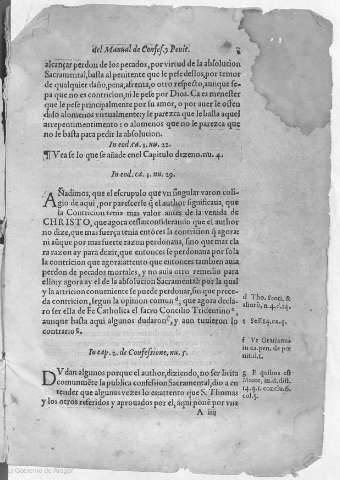 del Manual de Confes. y Penit. 8
alcançar perdon de los pecados, por virtud de la absolucion
Sacramental, basta al penitente que le pese dellos, por temor
de qualquier daño, pena, afrenta, o otro respecto, aunque se-
pa que no es contricion, ni le pese por Dios. Ca es menester
que le pese principalmente por su amor, o por auer le ofen
dido alomenos virtualmente: y le parezca que le basta aquel
arrepentimiento: o alomenos que no le parezca que
no le basta para pedir la absolucion.
In eod. ca. 1. nu. 22.
¶ Vea se lo que se añade en el Capitulo dezeno. nu. 4.
In eod. ca. 1. nu. 29.
Añadimos, que el escrupulo que vn singular varon coli-
gio de aqui, por parescerle q̃ el author significaua, que
la Contricion tenia mas valor antes de la venida de
CHRISTO, que agora cessa: considerando que el author
no dize, que mas fuerça tenia entõces la contricion q̃ agora:
ni aũ que por mas fuerte razon perdonaua, sino que mas cla
ra razon ay para dezir, que entonces se perdonaua por sola
la contricion que agora: attento que entonces tambien auia
perdon de pecados mortales, y no auia otro remedio para
ello: y agora ay el de la absolucion Sacramental: por la qual
y la attricion conueniente se puede perdonar, sin que prece-
da contricion, segun la opinion comun d, que agora decla-
ro ser ella de Fe Catholica el sacro Concilio Tridentino e,
aunque hasta aqui algunos dudaron f, y aun tuuieron lo
contrario g.
d Tho. Scoti, &
aliorũ, n. 4. d. 14.
e Sess. 14. ca. 4.
f Vt Gratianus
in ca. pen. de pœ
nit. d. 1.
In cap. 2. de Confessione, nu. 5.
Dvdan algunos porque el author, diziendo, no ser licita
comunmẽte la publica confession Sacramental, dio a en
tender que algunas vezes lo es: attento que S. Thomas
y los otros referidos y aprouados por el, aqui ponẽ por vna
A iiij